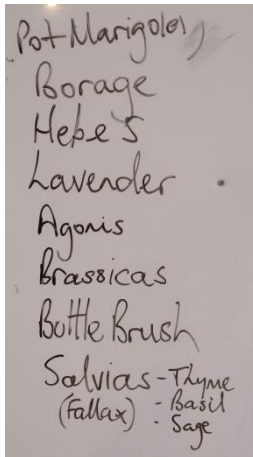 Pot Marigold,
Borage
Hebe's
Lavender
Agonis
Brassicas
Bottle Brush
Salvias - Thyme
(Fallax) - Basil
- Sage